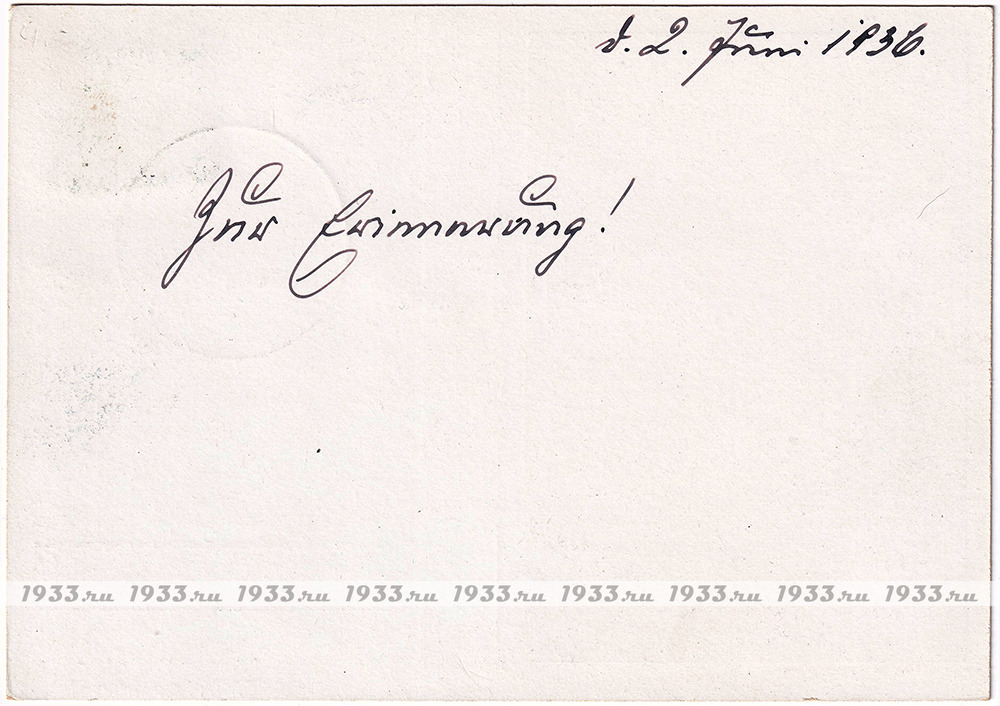 d. 2. Juni 1936.
Zur Erinnerung!
1933.ru 1933.ru 1933.ru 1933.ru 1933.ru 1933.ru 1933.ru 1933.ru 1933.ru